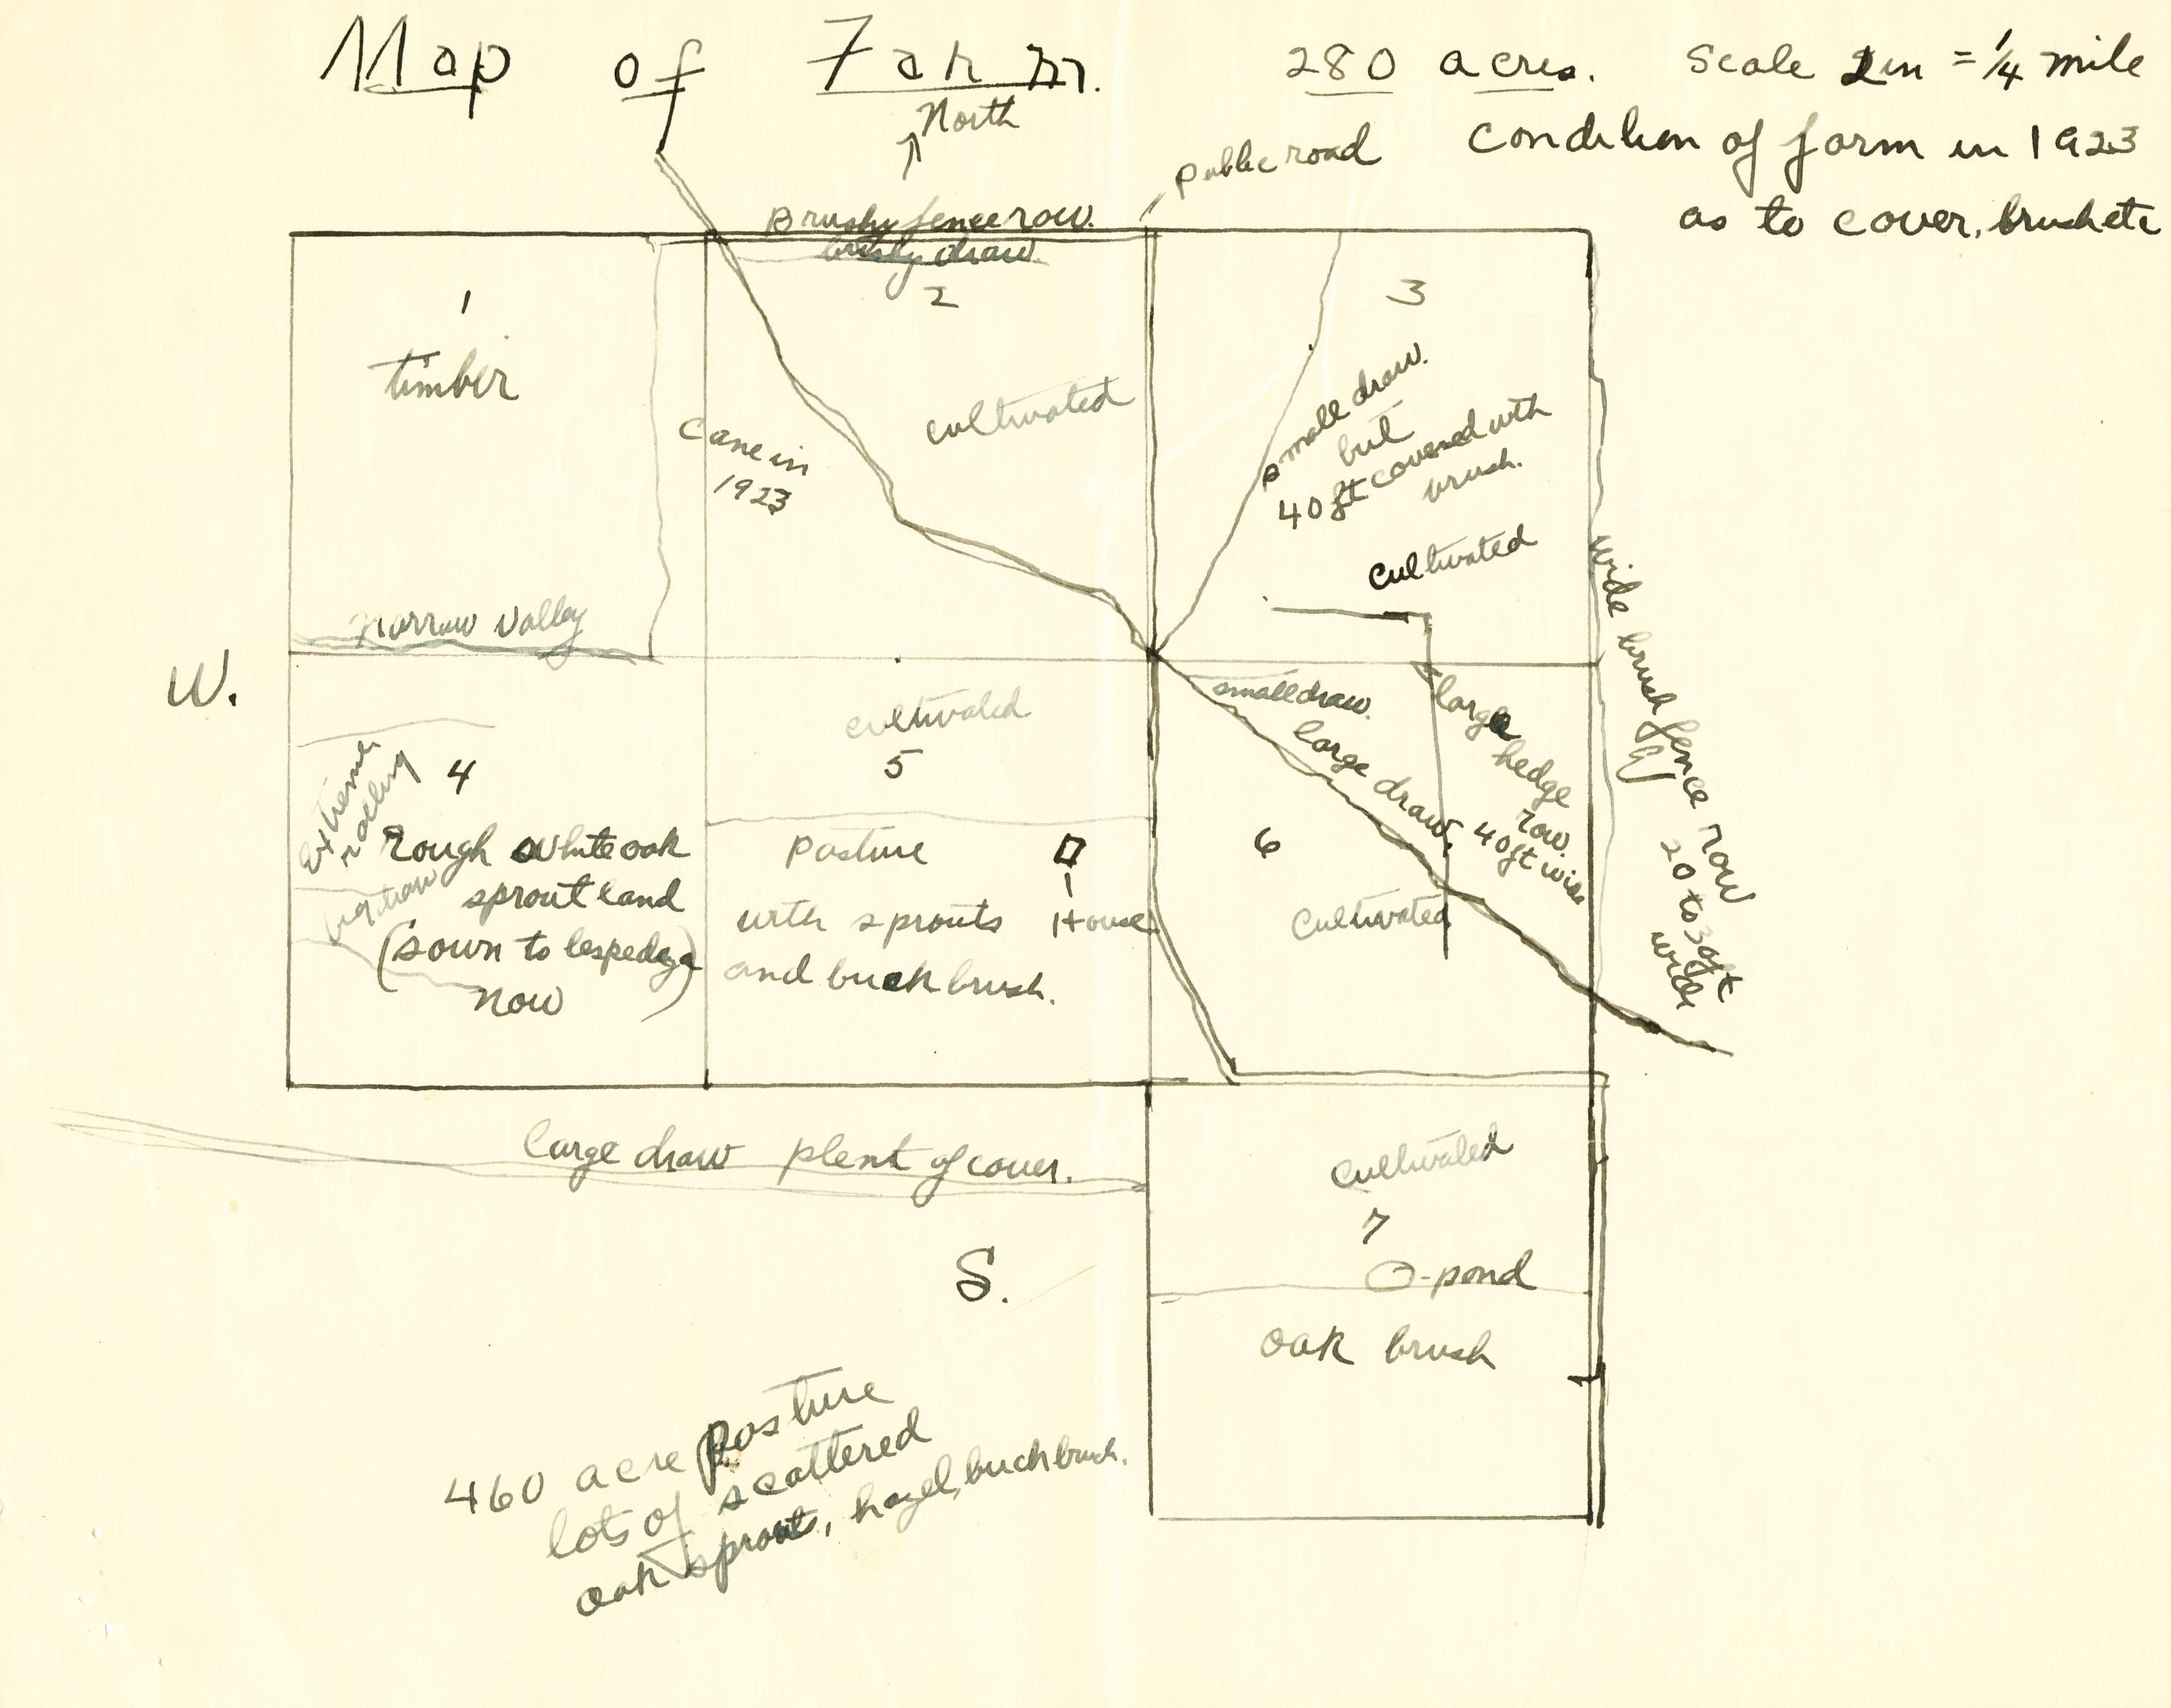 Map of Farm.
280 acres. Scale 2 in = 1/4 mile
Condition of farm in 1923
as to cover, brush etc
North
Public road
Brushy fence row.
brushy draw.
1
timber
Narrow Valley
2
cultivated
Cane in
1923
3
small draw.
but
40 ft covered with
brush.
Cultivated
W.
4
Extreme
rolling
Rough white oak
sprout land
(sown to lespedeza)
now
cultivated
5
Pasture
with sprouts
and buck brush.
House
small draw.
large draw.
large
hedge
row.
40 ft wide
6
Cultivated
wide brush fence row
20 to 30 ft
wide
large draw plent of cover.
S.
Cultivated
7
pond
oak brush
460 acre Pasture
lots of scattered
oak sprouts, hazel, buckbrush.